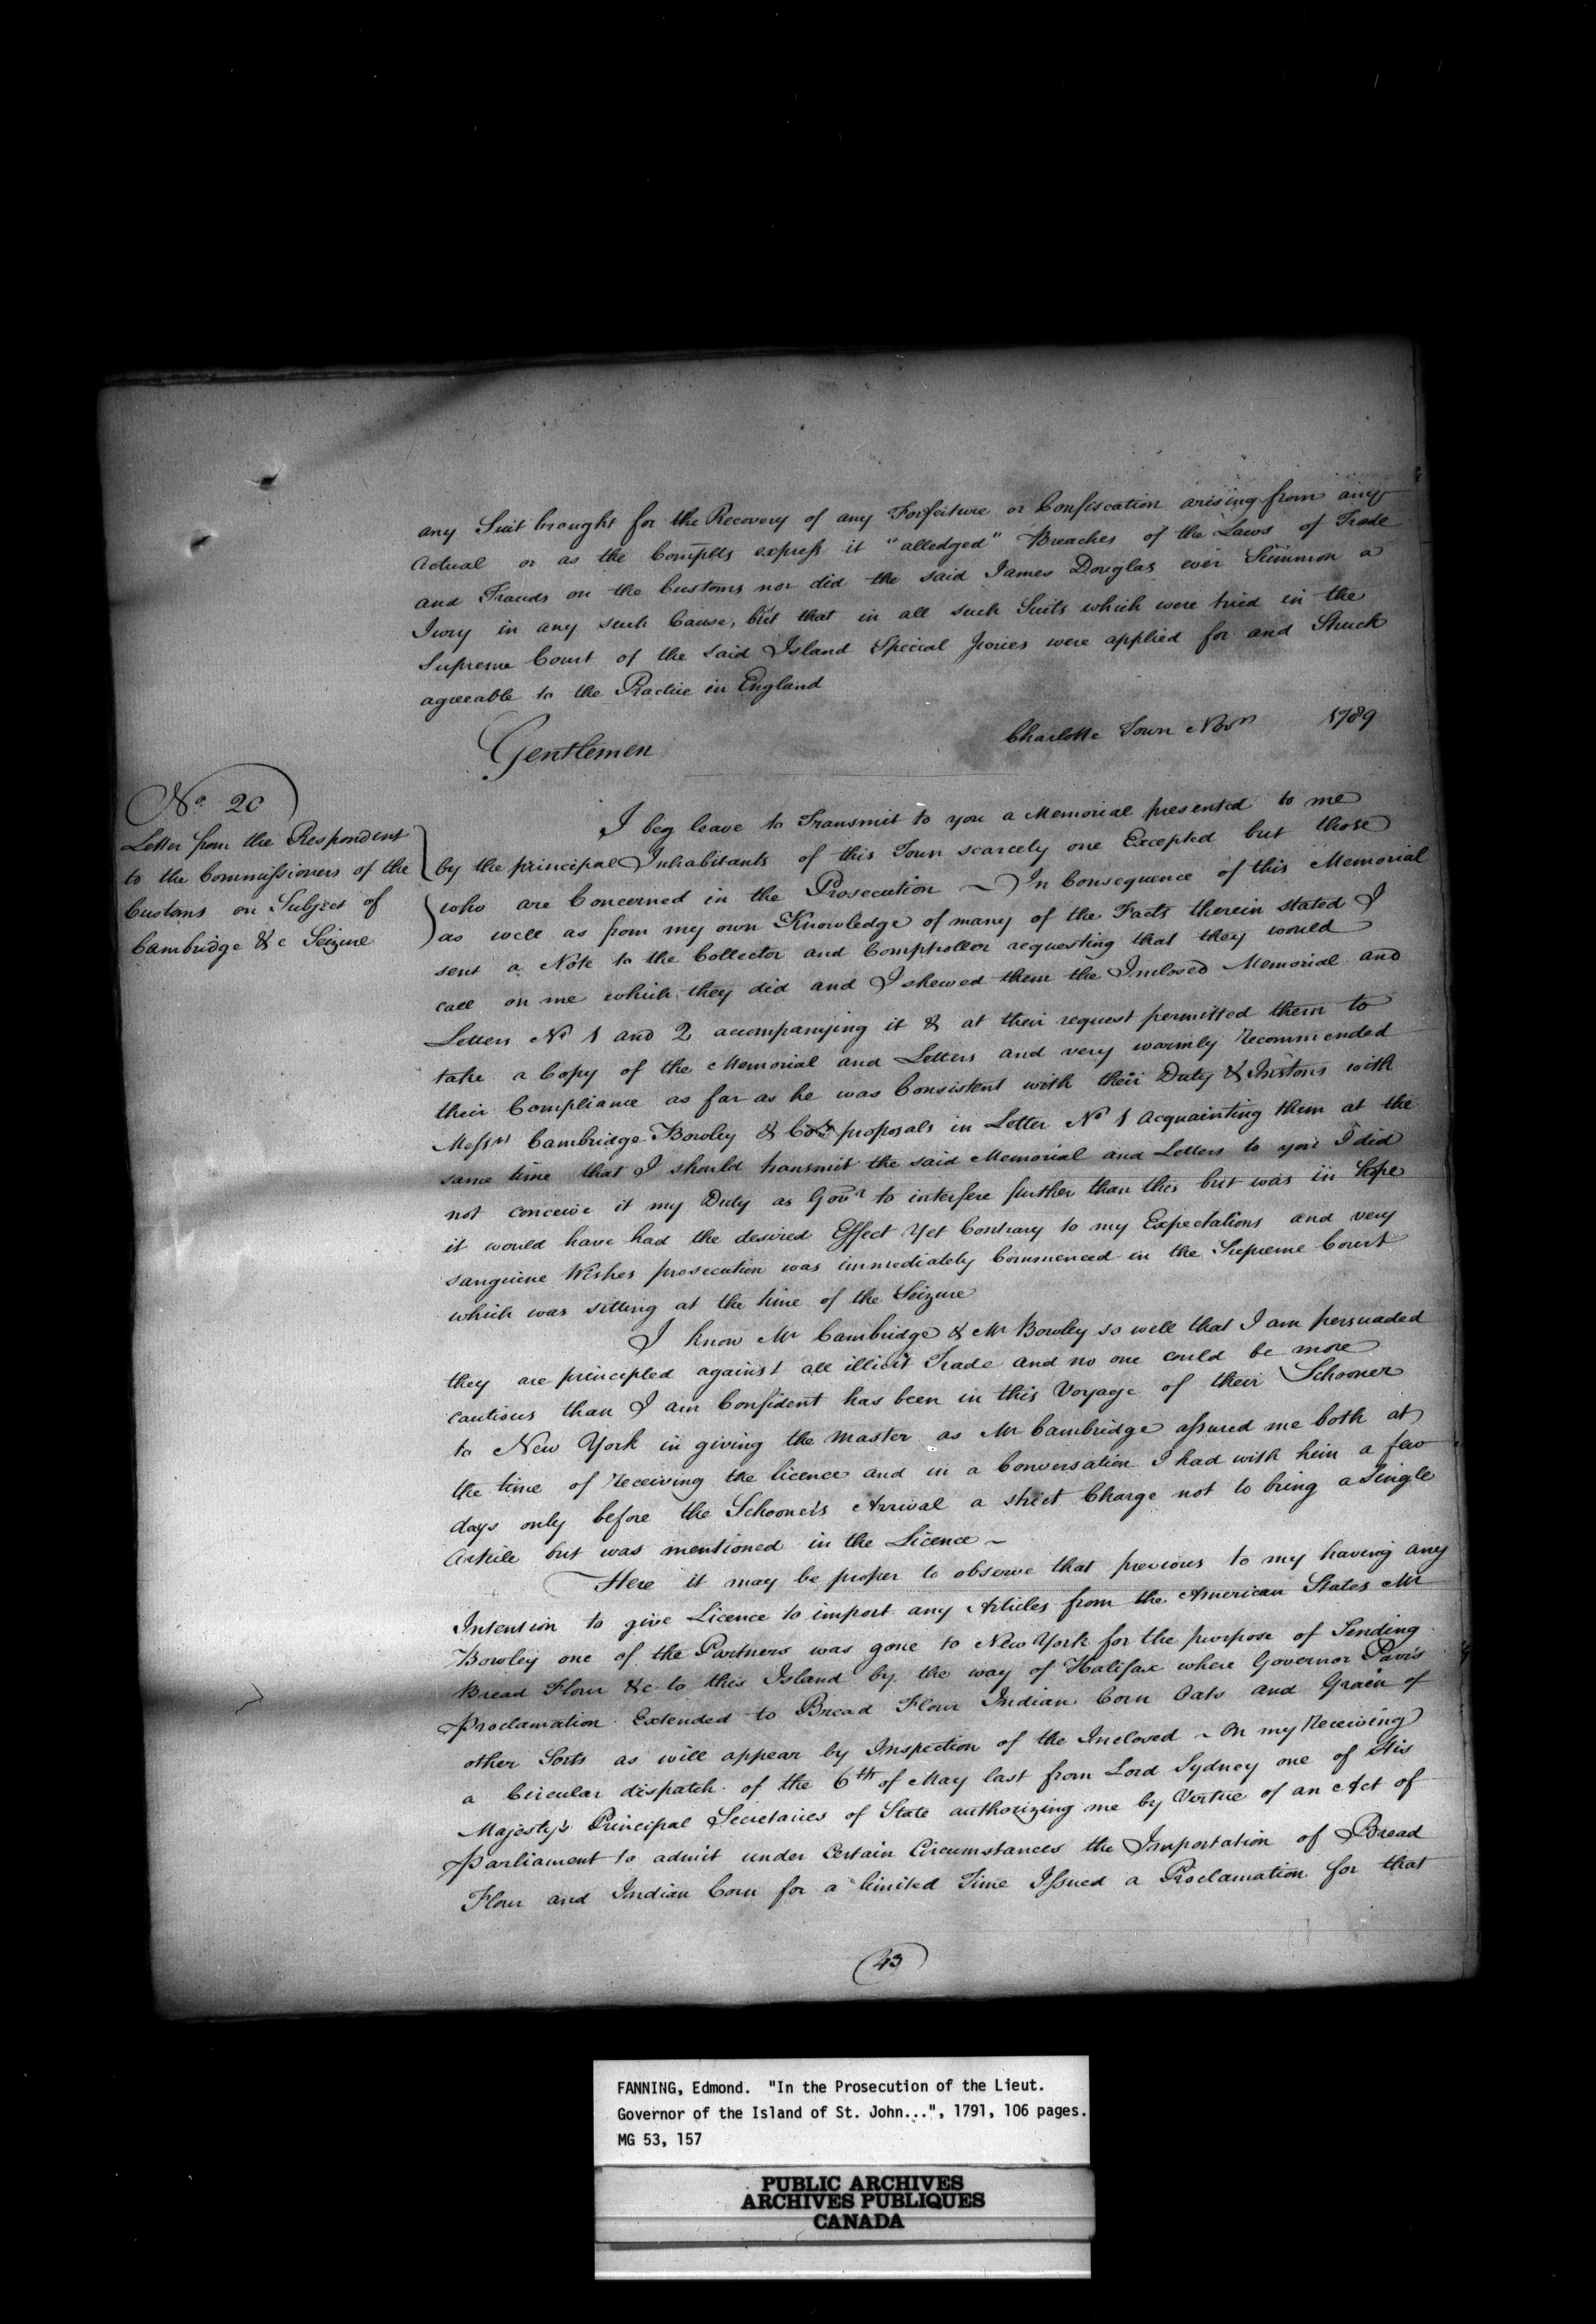 any Suit brought for the Recovery of any Forfeiture or Confiscation arising from any
actual or as the Complts express it "alledged" Breaches of the Laws of Trade
and Frauds on the Customs nor did the said James Douglas ever Summon a
Jury in any such Cause, but that in all such Suits which were tried in the
Supreme Court of the said Island Special Juries were applied for and Struck
agreeable to the Practice in England
Charlotte Town Novr 1789
Gentlemen
No. 20
Letter from the Respondent
to the Commissioners of the
Customs on Subject of
Cambridge &c Seizure
I beg leave to Transmit to you a Memorial presented to me
by the principal Inhabitants of this Town scarcely one Excepted but those
who are Concerned in the Prosecution ~ In Consequence of this Memorial
as well as from my own Knowledge of many of the Facts therein stated I
sent a Note to the Collector and Comptroller requesting that they would
call on me which they did and I shewed them the Inclosed Memorial and
Letters No 1 and 2 accompanying it & at their request permitted them to
take a Copy of the Memorial and Letters and very warmly Recommended
their Compliance as far as he was Consistent with their Duty & Instons with
Messrs Cambridge Bowley & Cos proposals in Letter No 1 acquainting them at the
same time that I should transmit the said Memorial and Letters to you I did
not conceive it my Duty as Govr to interfere further than this but was in hope
it would have had the desired Effect Yet Contrary to my Expectations and very
sanguine Wishes prosecution was immediately Commenced in the Supreme Court
which was sitting at the time of the Seizure
I know Mr Cambridge & Mr Bowley so well that I am persuaded
they are principled against all illicit Trade and no one could be more
cautious than I am Confident has been in this Voyage of their Schooner
to New York in giving the Master as Mr Cambridge assured me both at
the time of Receiving the licence and in a Conversation I had with him a few
days only before the Schooners Arrival a strict Charge not to bring a Single
Article but was mentioned in the Licence ~
Here it may be proper to observe that previous to my having any
Intention to give Licence to import any Articles from the American States Mr
Bowley one of the Partners was gone to New York for the purpose of Sending
Bread Flour &c to this Island by the way of Halifax where Governor Parr's
Proclamation Extended to Bread Flour Indian Corn Oats and Grain of
other Sorts as will appear by Inspection of the Inclosed ~ On my Receiving
a Circular dispatch of the 6th of May last from Lord Sydney one of His
Majesty's Principal Secretaries of State authorizing me by Virtue of an Act of
Parliament to admit under Certain Circumstances the Importation of Bread
Flour and Indian Corn for a limited Time Issued a Proclamation for that
43
FANNING, Edmond. "In the Prosecution of the Lieut.
Governor of the Island of St. John...", 1791, 106 pages.
MG 53, 157
PUBLIC ARCHIVES
ARCHIVES PUBLIQUES
CANADA